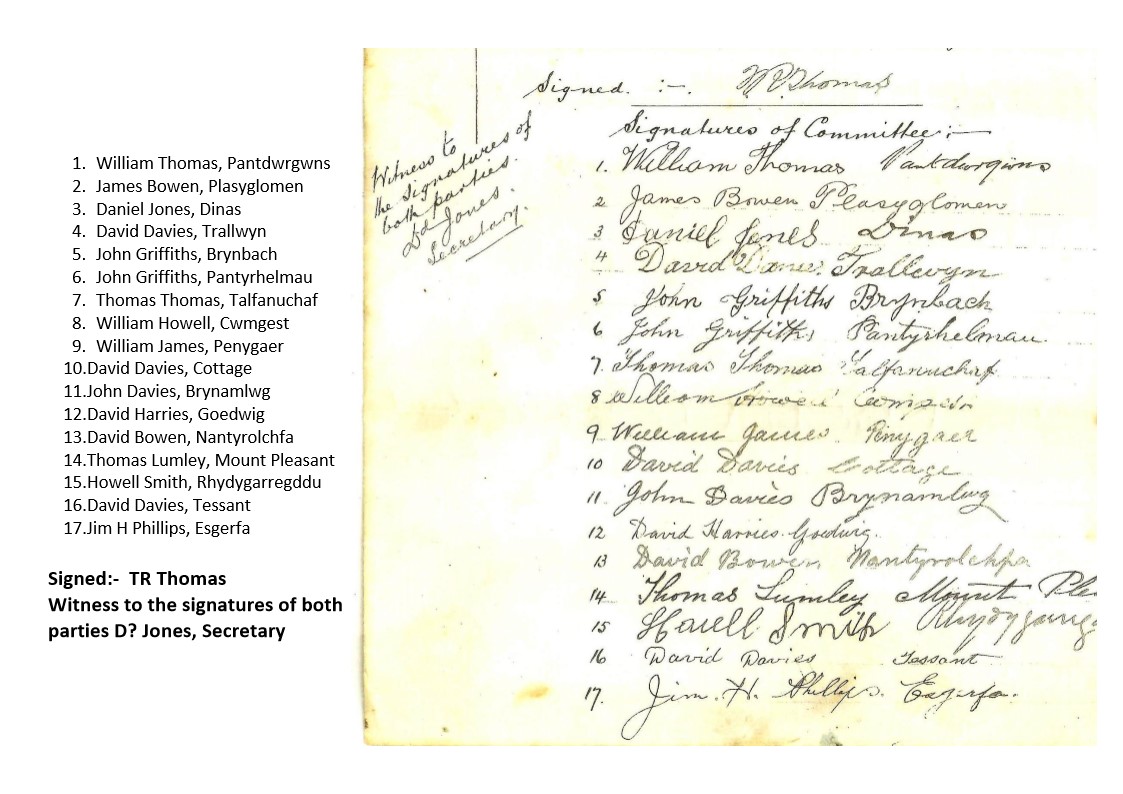 1. William Thomas, Pantdwrgwns
2. James Bowen, Plasyglomen
3. Daniel Jones, Dinas
4. David Davies, Trallwyn
5. John Griffiths, Brynbach
6. John Griffiths, Pantyrhelmau
7. Thomas Thomas, Talfanuchaf
8. William Howell, Cwmgest
9. William James, Penygaer
10.David Davies, Cottage
11.John Davies, Brynamlwg
12.David Harries, Goedwig
13.David Bowen, Nantyrolchfa
14.Thomas Lumley, Mount Pleasant
15.Howell Smith, Rhydygarregddu
16.David Davies, Tessant
17.Jim H Phillips, Esgerfa
Signed:- TR Thomas
Witness to the signatures of both
parties D? Jones, Secretary
Signed. :-. Thomas
Signatures of Committee:-
Witness to
the signatures of
both parties.
Dd Jones.
Secretary.
1. William Thomas Pantdwrgwns
2 James Bowen Plasyglomen
3 Daniel Jones Dinas
4 David Davies Trallwyn
5 John Griffiths Brynbach
6 John Griffiths Pantyrhelmau.
7. Thomas Thomas Talfanuchaf
8 William Howell
9 William James. Penygaer
10 David Davies Cottage
11. John Davies Brynamlwg
12 David Harries. Goedwig.
13 David Bowen Nantyrolchfa
14. Thomas Lumley Mount Plea
15 Howell Smith Rhydygarreg
16 David Davies Tessant
17. Jim. H. Phillips. Esgerfa.